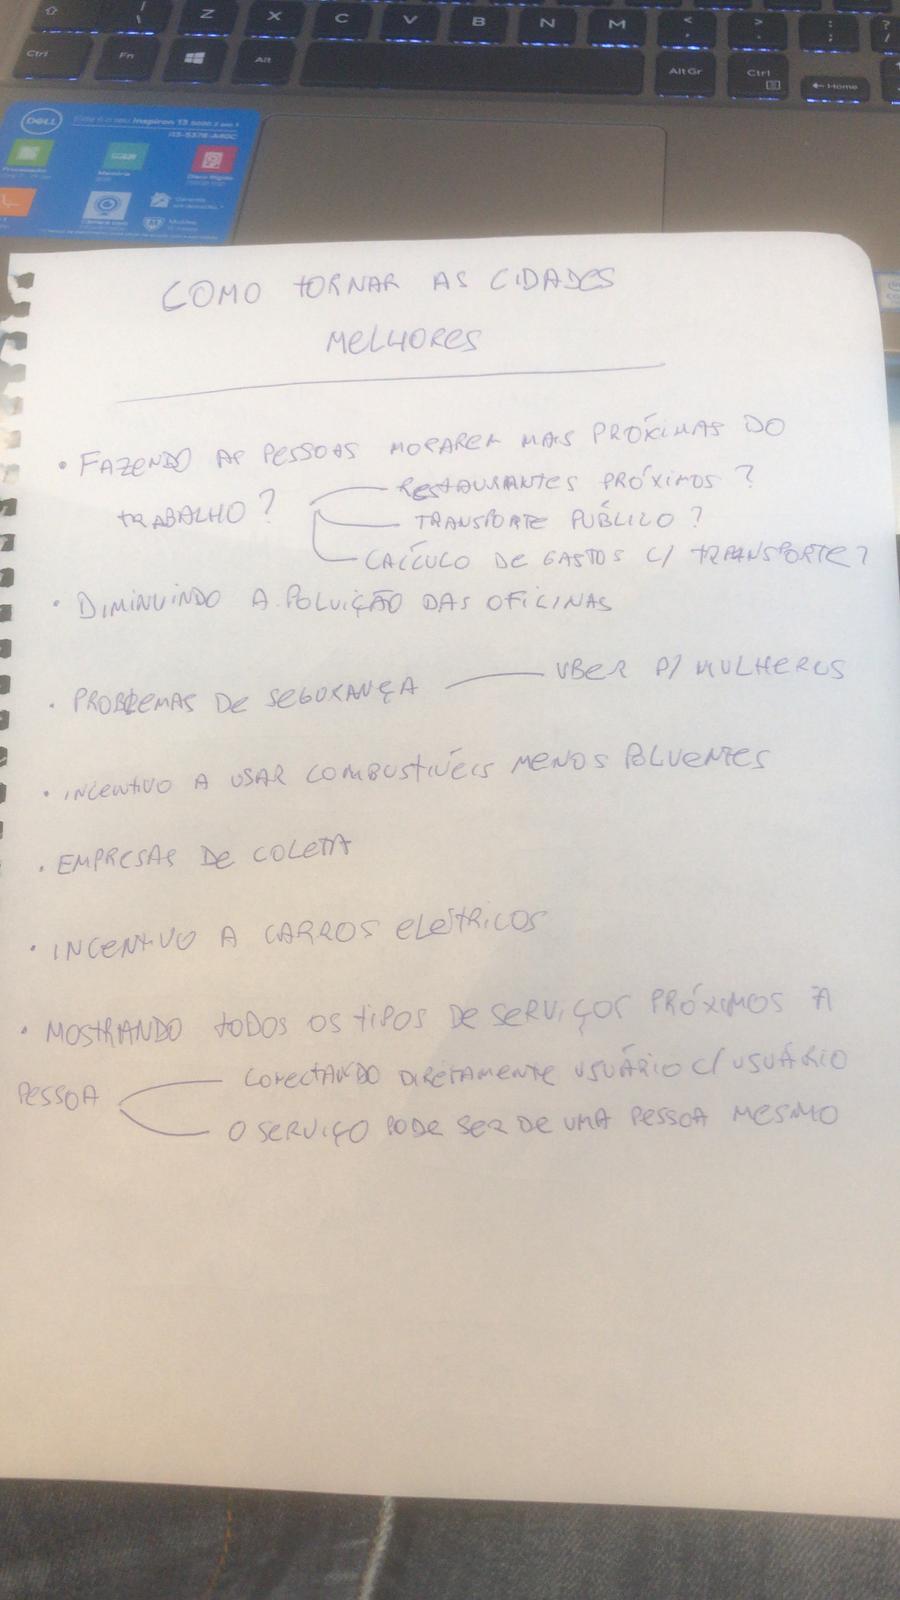 Z X C V B N M < > : ?
Ctrl Fn Alt Alt Gr Ctrl Home
DELL Este é o seu Inspiron 13 5000 2 em 1
I13-5378-A40C
Processador Memória Disco Rígido
COMO TORNAR AS CIDADES
MELHORES
• FAZENDO AS PESSOAS MORAREM MAIS PRÓXIMAS DO
TRABALHO? RESTAURANTES PRÓXIMOS?
TRANSPORTE PÚBLICO?
CALCULO DE GASTOS C/ TRANSPORTE?
• DIMINUINDO A POLUIÇÃO DAS OFICINAS
• PROBLEMAS DE SEGURANÇA UBER P/ MULHERES
• INCENTIVO A USAR COMBUSTIVÉIS MENOS POLUENTES
• EMPRESAS DE COLETA
• INCENTIVO A CARROS ELÉTRICOS
• MOSTRANDO TODOS OS TIPOS DE SERVIÇOS PRÓXIMOS À
PESSOA CONECTANDO DIRETAMENTE USUÁRIO C/ USUÁRIO
O SERVIÇO PODE SER DE UMA PESSOA MESMO